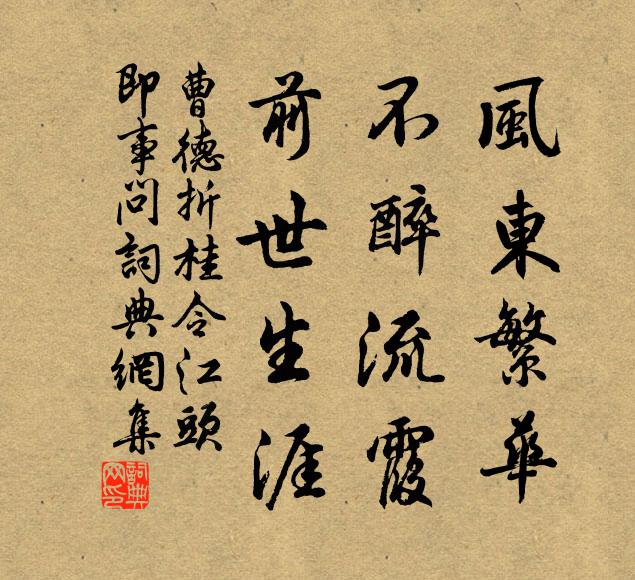 風東繁華
不醉流霞
前世生涯
曹德折桂令江頭
即事問詞典網集
詞典
网印